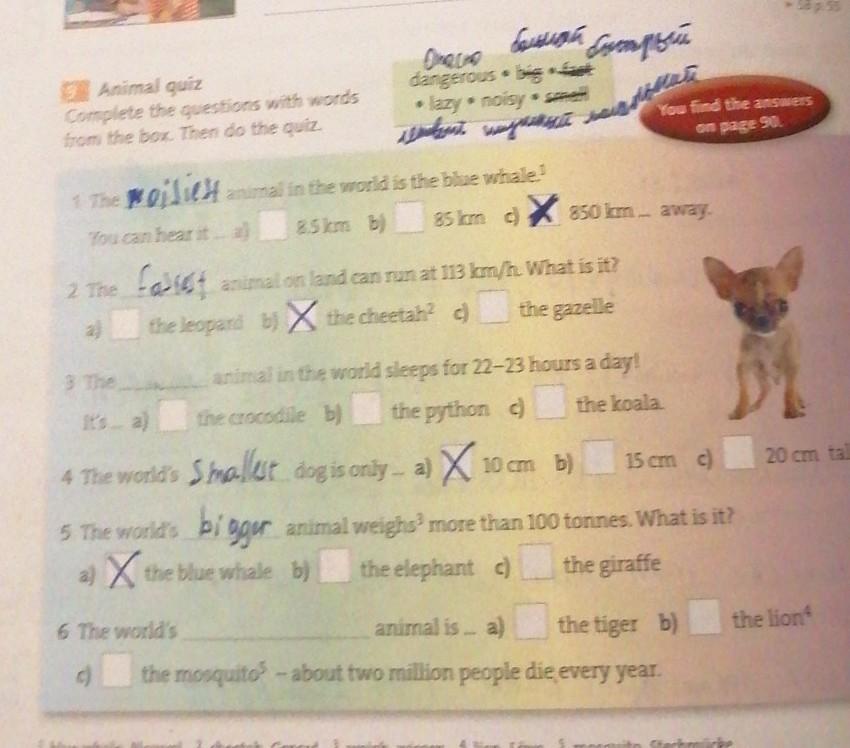 58 p. 55
большой быстрый
9 Animal quiz
dangerous • big • fast
Complete the questions with words
• lazy • noisy • small
from the box. Then do the quiz.
ленивый шумный маленький
You find the answers
on page 90.
1 The noisiest animal in the world is the blue whale.¹
You can hear it ... a) 8.5 km b) 85 km c) X 850 km ... away.
2 The fastest animal on land can run at 113 km/h. What is it?
a) the leopard b) X the cheetah² c) the gazelle
3 The ________ animal in the world sleeps for 22–23 hours a day!
It's ... a) the crocodile b) the python c) the koala.
4 The world's smallest dog is only ... a) X 10 cm b) 15 cm c) 20 cm tal
5 The world's bigger animal weighs³ more than 100 tonnes. What is it?
a) X the blue whale b) the elephant c) the giraffe
6 The world's ________ animal is ... a) the tiger b) the lion⁴
c) the mosquito⁵ – about two million people die every year.